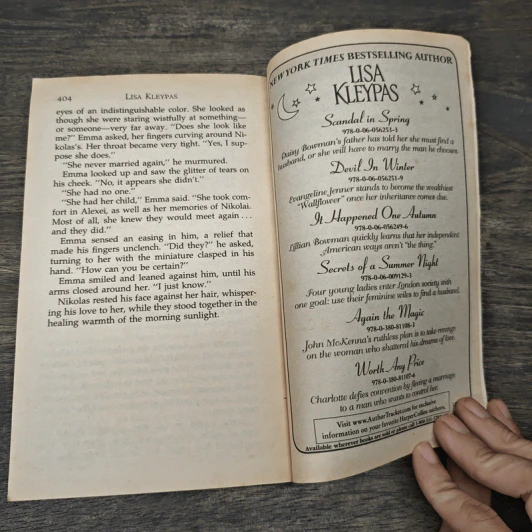 404
LISA KLEYPAS
eyes of an indistinguishable color. She looked as
though she were staring wistfully at something—
or someone—very far away. "Does she look like
me?" Emma asked, her fingers curving around Ni-
kolas's. Her throat became very tight. "Yes, I sup-
pose she does."
"She never married again," he murmured.
Emma looked up and saw the glitter of tears on
his cheek. "No, it appears she didn't."
"She had no one."
"She had her child," Emma said. "She took com-
fort in Alexei, as well as her memories of Nikolai.
Most of all, she knew they would meet again . . .
and they did."
Emma sensed an easing in him, a relief that
made his fingers unclench. "Did they?" he asked,
turning to her with the miniature clasped in his
hand. "How can you be certain?"
Emma smiled and leaned against him, until his
arms closed around her. "I just know."
Nikolas rested his face against her hair, whisper-
ing his love to her, while they stood together in the
healing warmth of the morning sunlight.
NEW YORK TIMES BESTSELLING AUTHOR
LISA
KLEYPAS
Scandal in Spring
978-0-06-056253-3
Daisy Bowman's father has told her she must find a
husband, or she will have to marry the man he chooses.
Devil In Winter
978-0-06-056251-9
Evangeline Jenner stands to become the wealthiest
"Wallflower" once her inheritance comes due.
It Happened One Autumn
978-0-06-056249-6
Lillian Bowman quickly learns that her independent
American ways aren't "the thing."
Secrets of a Summer Night
978-0-06-009129-3
Four young ladies enter London society with
one goal: use their feminine wiles to find a husband.
Again the Magic
978-0-380-81108-3
John McKenna's ruthless plan is to take revenge
on the woman who shattered his dreams of love.
Worth Any Price
978-0-380-81107-6
Charlotte defies convention by fleeing a marriage
to a man who wants to control her.
Visit www.AuthorTracker.com for exclusive
information on your favorite HarperCollins authors.
Available wherever books are sold or please call 1-800-331-